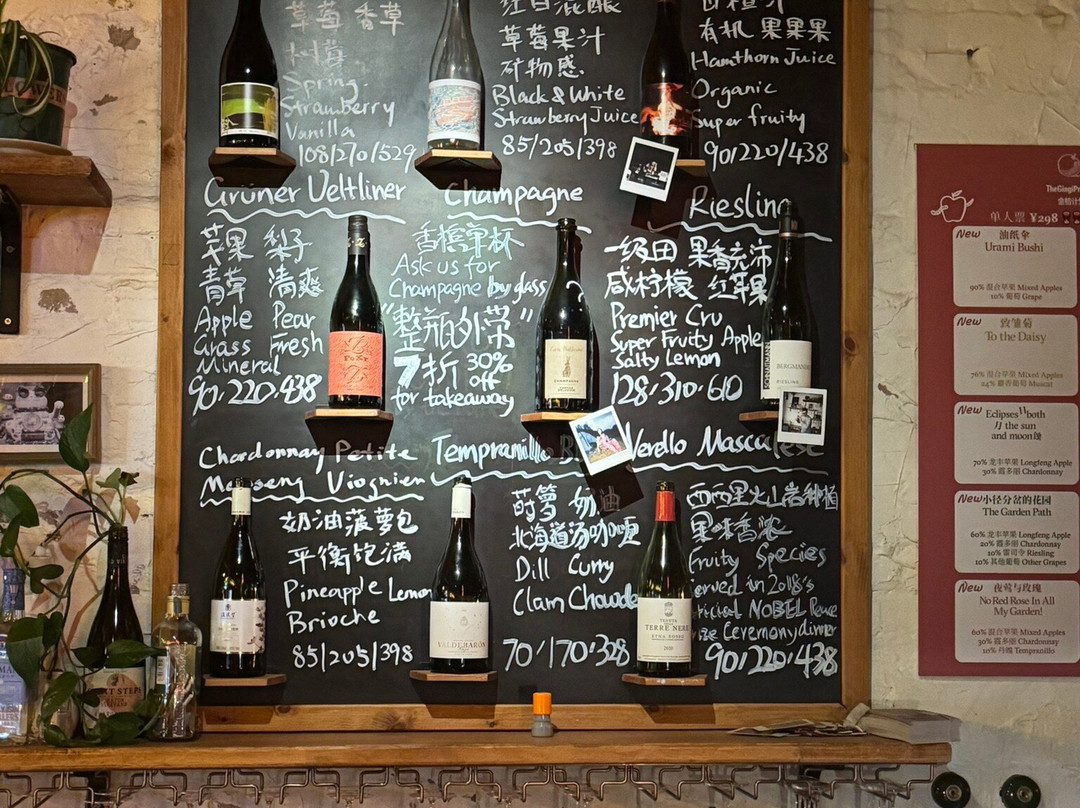 草莓 香草
树莓
Spring.
Strawberry
Vanilla
108/270/529
红白混酿
草莓果汁
矿物感
Black & White
Strawberry Juice
85/205/398
有机 果果果
Hamthorn Juice
Organic
Super fruity
90/220/438
Grüner Veltliner
苹果 梨子
青草 清爽
Apple Pear
Grass Fresh
Mineral
90/220/438
Champagne
香槟单杯
Ask us for
Champagne by glass
"整瓶外带"
7折 30%
off
for takeaway
Riesling
一级田 果香充沛
咸柠檬 红苹果
Premier Cru
Super Fruity Apple
Salty Lemon
128/310/610
Chardonnay Petite
Manseng Viognier
奶油菠萝包
平衡饱满
Pineapple Lemon
Brioche
85/205/398
Tempranillo
莳萝 奶油
北海道汤咖喱
Dill Curry
Clam Chowde
70/170/328
Nerello Mascalese
西西里火山岩种植
果味香浓
Fruity Species
erved in 2018's
NOBEL Peace
ize Ceremony dinner
90/220/438
FOXY
BERGMANN
RIESLING
VALDEBARÓN
TERRE NERE
ETNA ROSSO
2020
TheGingiP
单人票 ¥298
New 油纸伞
Urami Bushi
90% 混合苹果 Mixed Apples
10% 葡萄 Grape
New 致雏菊
To the Daisy
76% 混合苹果 Mixed Apples
24% 麝香葡萄 Muscat
New Eclipses both
月 the sun
and moon蚀
70% 龙丰苹果 Longfeng Apple
30% 霞多丽 Chardonnay
New 小径分岔的花园
The Garden Path
60% 龙丰苹果 Longfeng Apple
20% 霞多丽 Chardonnay
10% 雷司令 Riesling
10% 其他葡萄 Other Grapes
New 夜莺与玫瑰
No Red Rose In All
My Garden!
60% 混合苹果 Mixed Apples
30% 霞多丽 Chardonnay
10% 丹魄 Tempranillo